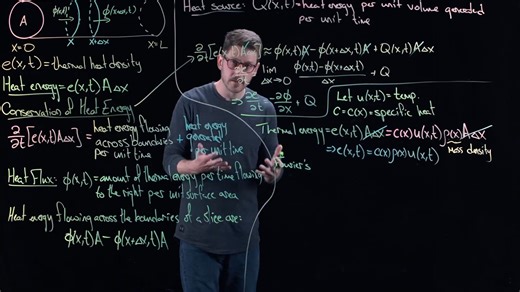 A
φ(x,t)
φ(x+Δx,t)
x=0
x
x+Δx
x=L
e(x,t)=thermal heat density
Heat energy=e(x,t)AΔx
Conservation of Heat Energy
∂/∂t[e(x,t)AΔx]=heat energy flowing across boundaries per unit time + heat energy generated per unit time
Heat Flux: φ(x,t)=amount of thermal energy per time flowing
to the right per unit surface area
Heat energy flowing across the boundaries of a slice are:
φ(x,t)A-φ(x+Δx,t)A
Heat Source: Q(x,t)=heat energy per unit volume generated
per unit time
∂/∂t[e(x,t)AΔx]≈φ(x,t)A-φ(x+Δx,t)A+Q(x,t)AΔx
lim Δx→0 φ(x,t)-φ(x+Δx,t)/Δx +Q
∂e/∂t=-∂φ/∂x+Q
Let u(x,t)=temp.
C=C(x)=specific heat
Thermal energy=e(x,t)AΔx=C(x)u(x,t)ρ(x)AΔx
mass density
⇒e(x,t)=C(x)ρ(x)u(x,t)